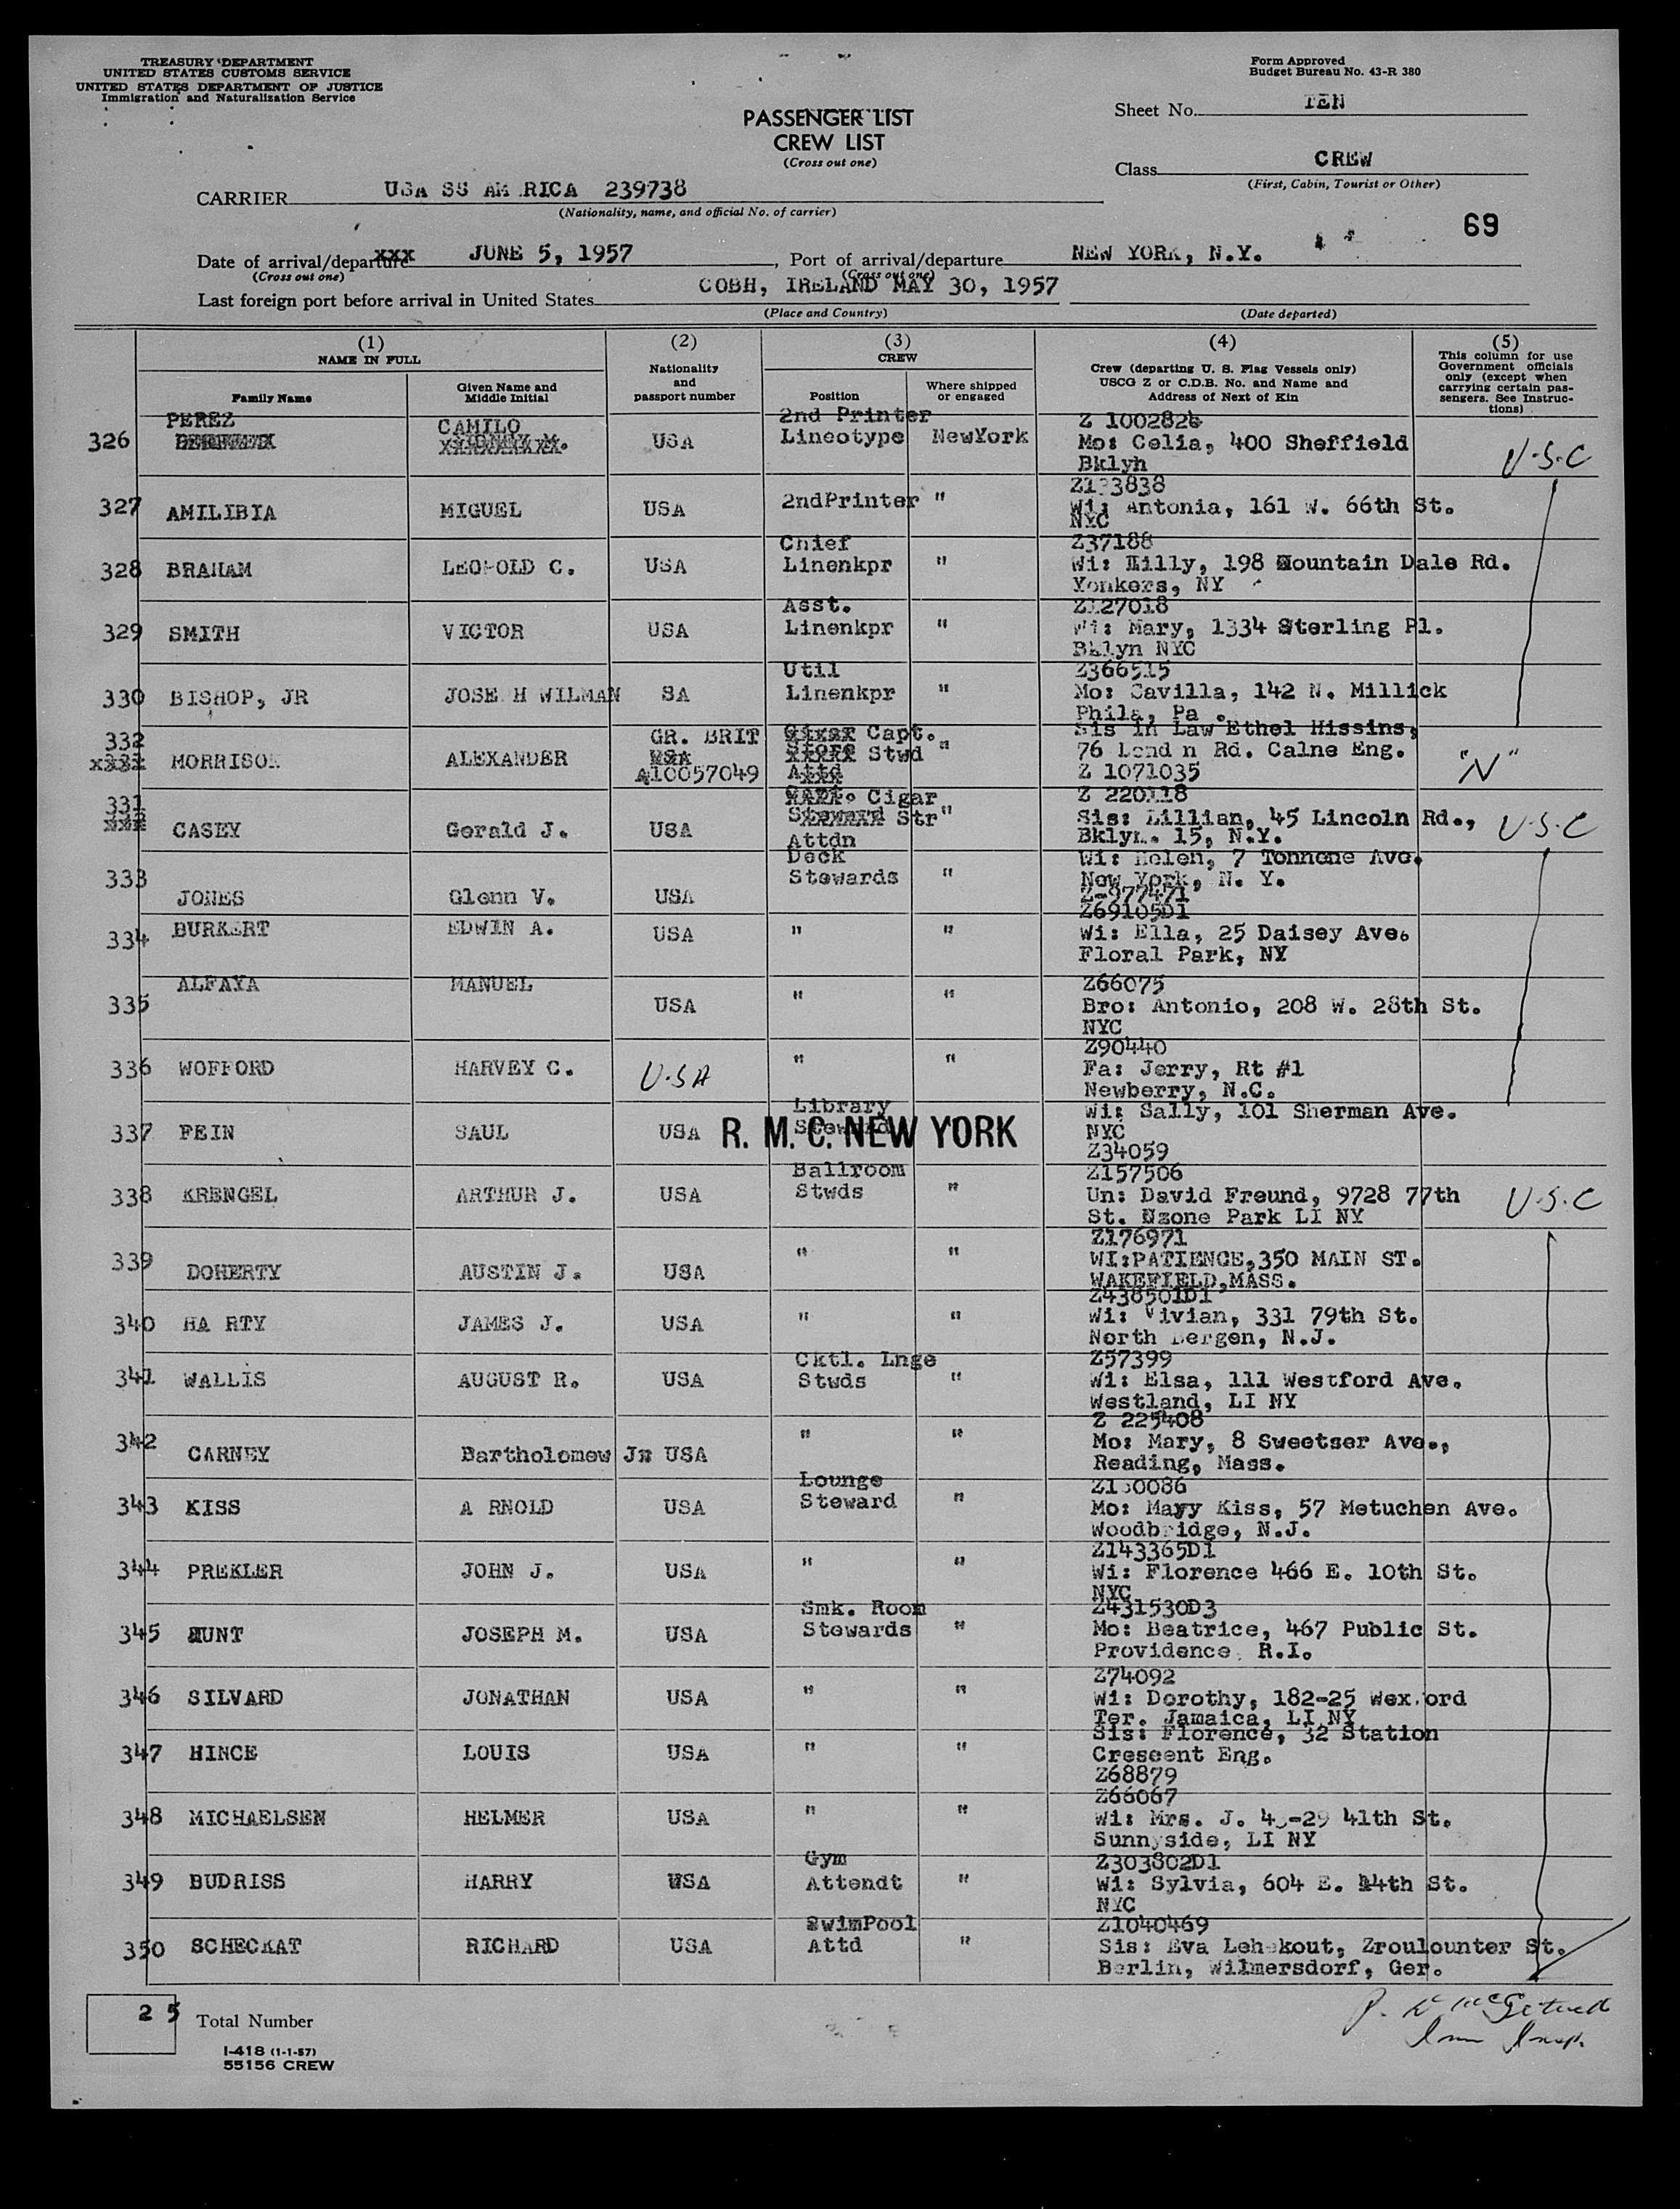 TREASURY DEPARTMENT
UNITED STATES CUSTOMS SERVICE
UNITED STATES DEPARTMENT OF JUSTICE
Immigration and Naturalization Service
Form Approved
Budget Bureau No. 43-R 380
PASSENGER LIST
CREW LIST
(Cross out one)
Sheet No. TEN
Class CREW
(First, Cabin, Tourist or Other)
CARRIER USA SS AM RICA 239738
(Nationality, name, and official No. of carrier)
69
Date of arrival/departure xxx JUNE 5, 1957, Port of arrival/departure NEW YORK, N.Y.
(Cross out one) (Cross out one)
Last foreign port before arrival in United States COBH, IRELAND MAY 30, 1957
(Place and Country) (Date departed)
(1) (2) (3) (4) (5)
NAME IN FULL
Family Name
Given Name and Middle Initial
Nationality and passport number
CREW
Position
Where shipped or engaged
Crew (departing U. S. Flag Vessels only)
USCG Z or C.D.B. No. and Name and
Address of Next of Kin
This column for use
Government officials
only (except when
carrying certain pas-
sengers. See Instruc-
tions)
326 PEREZ CAMILO USA 2nd Printer Lineotype NewYork Z 1002826
Mo: Celia, 400 Sheffield
Bklyh
U.S.C
327 AMILIBIA MIGUEL USA 2ndPrinter "
Wi: Antonia, 161 W. 66th St.
NYC
328 BRAHAM LEOPOLD C. USA Chief Linenkpr " Z37188
Wi: Milly, 198 Mountain Dale Rd.
Yonkers, NY
329 SMITH VICTOR USA Asst. Linenkpr " Z127018
Wi: Mary, 1334 Sterling Pl.
Bklyn NYC
330 BISHOP, JR JOSE H WILMAN SA Util Linenkpr " Z366515
Mo: Cavilla, 142 N. Millick
Phila, Pa .
332 MORRISON ALEXANDER GR. BRIT A10057049 Capt. Store Stwd "
Sis in Law Ethel Hissins,
76 Lond n Rd. Calne Eng.
Z 1071035
"N"
331 CASEY Gerald J. USA Cigar Str Attdn " Z 220118
Sis: Lillian, 45 Lincoln Rd.,
Bklyn. 15, N.Y.
U.S.C
333 JONES Glenn V. USA Deck Stewards "
Wi: Helen, 7 Tonnone Ave.
New York, N. Y.
Z-977471
334 BURKERT EDWIN A. USA " " Z69105D1
Wi: Ella, 25 Daisey Ave.
Floral Park, NY
335 ALFAYA MANUEL USA " " Z66075
Bro: Antonio, 208 W. 28th St.
NYC
336 WOFFORD HARVEY C. U.S.A " " Z90440
Fa: Jerry, Rt #1
Newberry, N.C.
337 FEIN SAUL USA Library Steward
Wi: Sally, 101 Sherman Ave.
NYC
Z34059
R. M. C. NEW YORK
338 KRENGEL ARTHUR J. USA Ballroom Stwds " Z157506
Un: David Freund, 9728 77th
St. Ozone Park LI NY
U.S.C
339 DOHERTY AUSTIN J. USA " " Z176971
WI:PATIENCE,350 MAIN ST.
WAKEFIELD,MASS.
340 HA RTY JAMES J. USA " " Z438501D1
Wi: Vivian, 331 79th St.
North Bergen, N.J.
341 WALLIS AUGUST R. USA Cktl. Lnge Stwds " Z57399
Wi: Elsa, 111 Westford Ave.
Westland, LI NY
342 CARNEY Bartholomew USA " " Z 225408
Mo: Mary, 8 Sweetser Ave.,
Reading, Mass.
343 KISS A RNOLD USA Lounge Steward "
Mo: Mayy Kiss, 57 Metuchen Ave.
Woodbridge, N.J.
344 PREKLER JOHN J. USA " " Z143365D1
Wi: Florence 466 E. 10th St.
NYC
345 HUNT JOSEPH M. USA Smk. Room Stewards " Z431530D3
Mo: Beatrice, 467 Public St.
Providence, R.I.
346 SILVARD JONATHAN USA " " Z74092
Wi: Dorothy, 182-25 Wex ord
Ter. Jamaica, LI NY
347 HINCE LOUIS USA " "
Sis: Florence, 32 Station
Crescent Eng.
Z68879
348 MICHAELSEN HELMER USA " " Z66067
Wi: Mrs. J. 41th St.
Sunnyside, LI NY
349 BUDRISS HARRY USA Gym Attendt " Z303802D1
Wi: Sylvia, 604 E. 14th St.
NYC
350 SCHECKAT RICHARD USA SwimPool Attd " Z1040469
Sis: Eva Zroulounter St.
Berlin, Wilmersdorf, Ger.
2 5 Total Number
I-418 (1-1-57)
55156 CREW